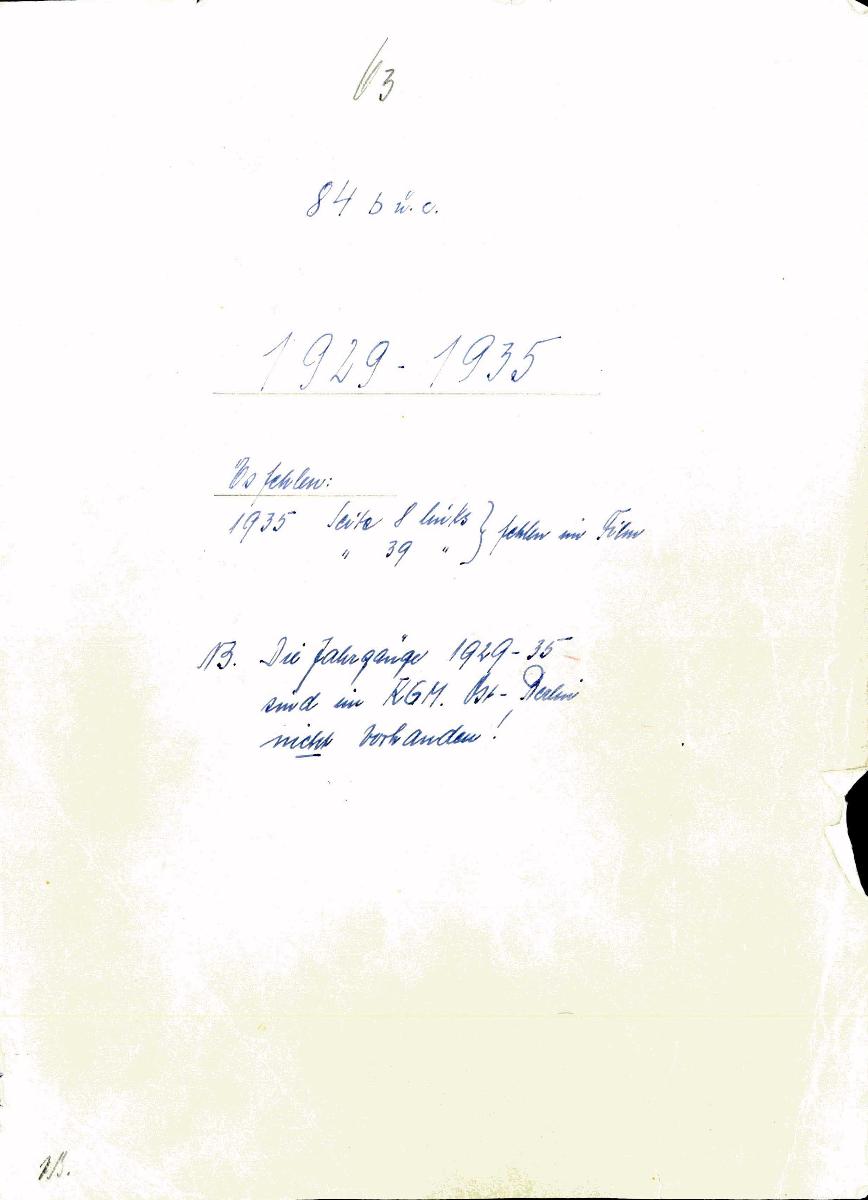 63
84 b u. c.
1929 - 1935
Es fehlen:
1935 Seite 8 links } fehlen im Film
" 39 "
NB. Die Jahrgänge 1929-35
sind im KGM. Ost-Berlin
nicht vorhanden!
NB.